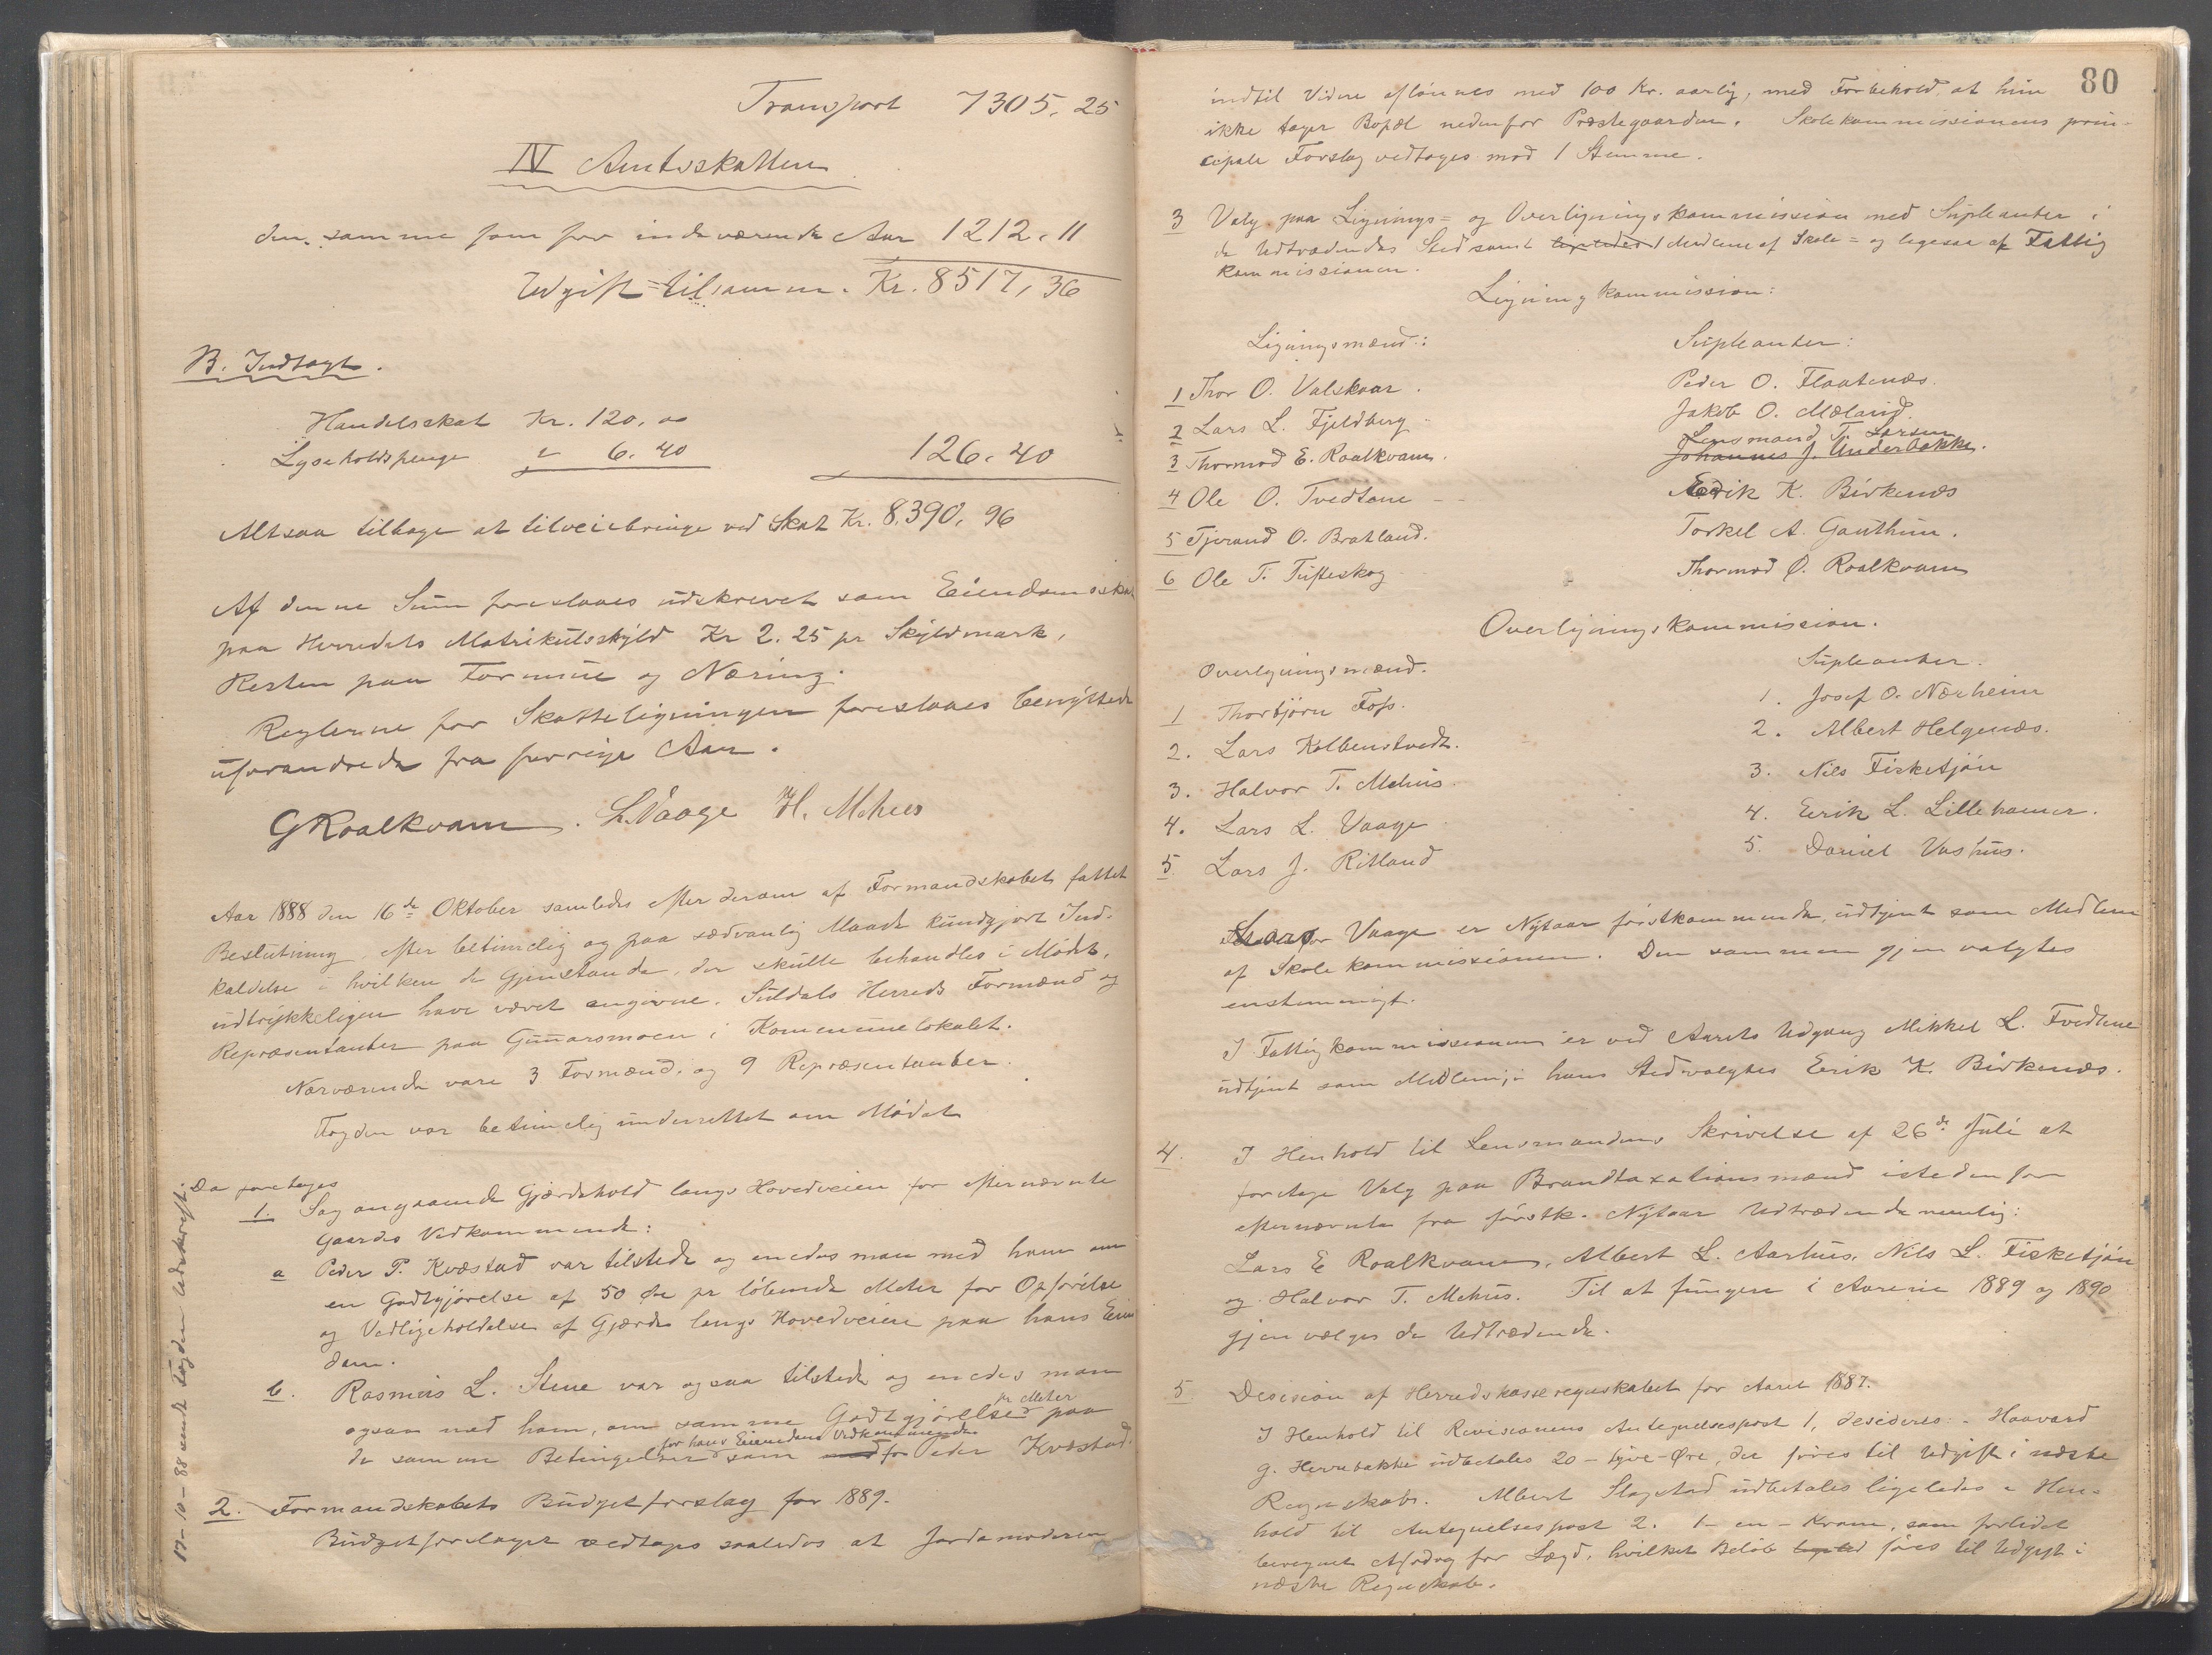 Transport 7305,25
IV Amtsskatten
den samme som for indeværende Aar 1212,11
Udgift tilsammen Kr. 8517,36
B. Indtægt.
Handelsskat Kr. 120,00
Lyseholdspenge " 6,40 126,40
Altsaa tilbage at tilveiebringe ved Skat Kr. 8,390,96
Af denne Sum foreslaaes udskrevet som Eiendomsskat
paa Herredets Matrikulskyld Kr 2.25 pr Skyldmark,
Resten paa Formue og Næring.
Reglerne for Skatteligningen foreslaaes benyttede
uforandrede fra forrige Aar.
GRoalkvam. L. Vaage H. Mehus
Aar 1888 den 16de Oktober samledes efter derom af Formandskabet fattet
Beslutning, efter betimelig og paa sædvanlig Maade kundgjort Ind-
kaldelse i hvilken de Gjenstande, der skulle behandles i Mødet,
udtrykkeligen have været angivne. Suldals Herreds Formænd og
Repræsentanter paa Gunarsmoen i Kommunelokalet.
Nærværende vare 3 Formænd og 9 Repræsentanter.
Fogden var betimelig underrettet om Mødet
Da foretages
1. Sag angaaende Gjærdehold langs Hovedveien for efternævnte
Gaardes Vedkommende:
a Peder P. Kvæstad var tilstede og enedes man med ham om
en Godtgjørelse af 50 Øre pr løbende Meter for Opførelse
og Vedligeholdelse af Gjærde langs Hovedveien paa hans Eien
dom.
b. Rasmus L. Stene var ogsaa tilstede og enedes man
ogsaa med ham, om samme Godtgjørelse pr Meter paa
de samme Betingelser for hans Eiendoms Vedkommende som for Peder Kvæstad.
2. Formandskabets Budgetforslag for 1889.
Budgetforslaget vedtages saaledes at Jordemoderen
17-10-88 sendt Fogden Udskrift.
80
indtil Videre aflønnes med 100 Kr. aarlig, med Forbehold, at hun
ikke tager Bopæl nedenfor Præstegaarden. Skolekommissionens prin-
cipale Forslag vedtages mod 1 Stemme.
3 Valg paa Lignings- og Overligningskommission med Supleanter i
de Udtrædendes Sted samt ligeledes 1 Medlem af Skole- og ligesaa af Fattig
kommissionen.
Ligningkommission:
Ligningsmænd: Supleanter:
1 Thor O. Valskaar. Peder O. Flaatenæs.
2 Lars L. Fjeldberg Jakob O. Mæland.
Lensmand T. Larsen
3 Thormod E. Roalkvam. Johannes J. Underbakke.
4 Ole O. Tvedtane Eerik K. Birkenæs
5 Tjerand O. Bratland. Torkel A. Gauthun.
6 Ole T. Tufteskog Thormod Ø. Roalkvam
Overligningskommission.
Overligningsmænd. Supleanter.
1 Thorbjørn Foss. 1. Josef O. Nærheim
2. Lars Kolbenstvedt. 2. Albert Helgenæs.
3. Halvor T. Mehus. 3. Nils Fisketjøn
4. Lars L. Vaage 4. Eerik L. Lillehamer.
5. Lars J. Ritland 5. Daniel Vashus.
Lars Vaage er Nytaar førstkommende, udtjent som Medlem
af Skolekommissionen. Den sammen gjenvalgtes
enstemmigt.
I Fattigkommissionen er ved Aarets Udgang Mikkel L. Tvedtene
udtjent som Medlem; i hans Sted valgtes Eerik K. Birkenæs.
4. I Henhold til Lensmandens Skrivelse af 26de Juli at
foretage Valg paa Brandtaxationsmænd istedenfor
efternævnte fra førstk. Nytaar Udtrædende nemlig:
Lars E Roalkvam, Albert L. Aarhus, Nils L. Fisketjøn
og Halvor T. Mehus. Til at fungere i Aarene 1889 og 1890
gjenvælges de Udtrædende.
5 Desision af Herredskasseregnskabet for Aaret 1887.
I Henhold til Revisionens Antegnelsespost 1, desideres: Haavard
G. Herrebakke udbetales 20 - tyve - Øre, der føres til Udgift i næste
Regnskab. Albert Slagstad udbetales ligeledes i Hen-
hold til Antegnelsespost 2. 1 - en - Krone, som forlidet
beregnet Afdrag for Lægd, hvilket Beløb føres til Udgift i
næste Regnskab.